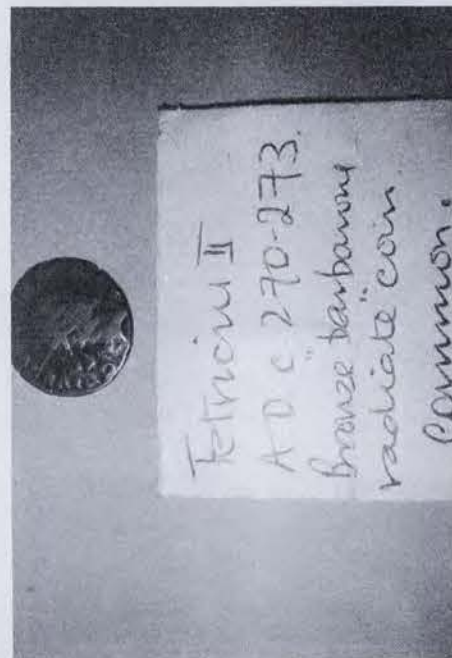 Tetricus II
AD c. 270-273.
Bronze barbarous
radiate coin.
Common.